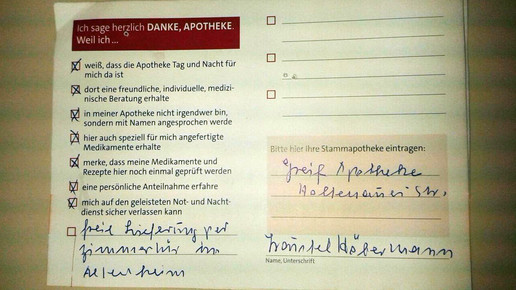 Ich sage herzlich DANKE, APOTHEKE.
Weil ich ...
weiß, dass die Apotheke Tag und Nacht für
mich da ist
dort eine freundliche, individuelle, medizi-
nische Beratung erhalte
in meiner Apotheke nicht irgendwer bin,
sondern mit Namen angesprochen werde
hier auch speziell für mich angefertigte
Medikamente erhalte
merke, dass meine Medikamente und
Rezepte hier noch einmal geprüft werden
eine persönliche Anteilnahme erfahre
mich auf den geleisteten Not- und Nacht-
dienst sicher verlassen kann
freie Lieferung per
Zimmertür im
Altenheim
Bitte hier Ihre Stammapotheke eintragen:
Greif Apotheke
Holtenauer Str.
Habermann
Name, Unterschrift